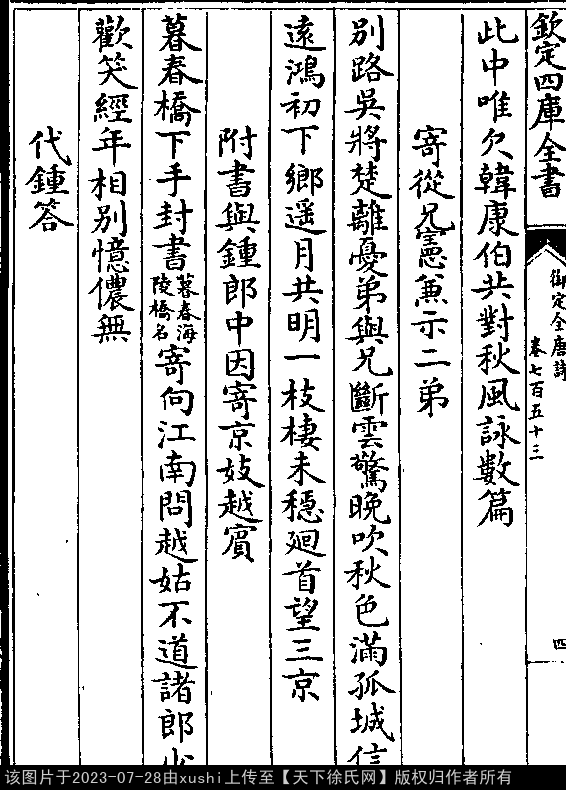 欽定四庫全書
御定全唐詩
卷七百五十三
四
此中唯欠韓康伯共對秋風詠數篇
寄從兄憲兼示二弟
別路吳將楚離憂弟與兄斷雲驚晚吹秋色滿孤城信
遠鴻初下鄉遥月共明一枝棲未穩廻首望三京
附書與鍾郎中因寄京妓越賓
暮春橋下手封書暮春海陵橋名寄向江南問越姑不道諸郎少
歡笑經年相別憶儂無
代鍾答
该图片于2023-07-28由xushi上传至【天下徐氏网】版权归作者所有